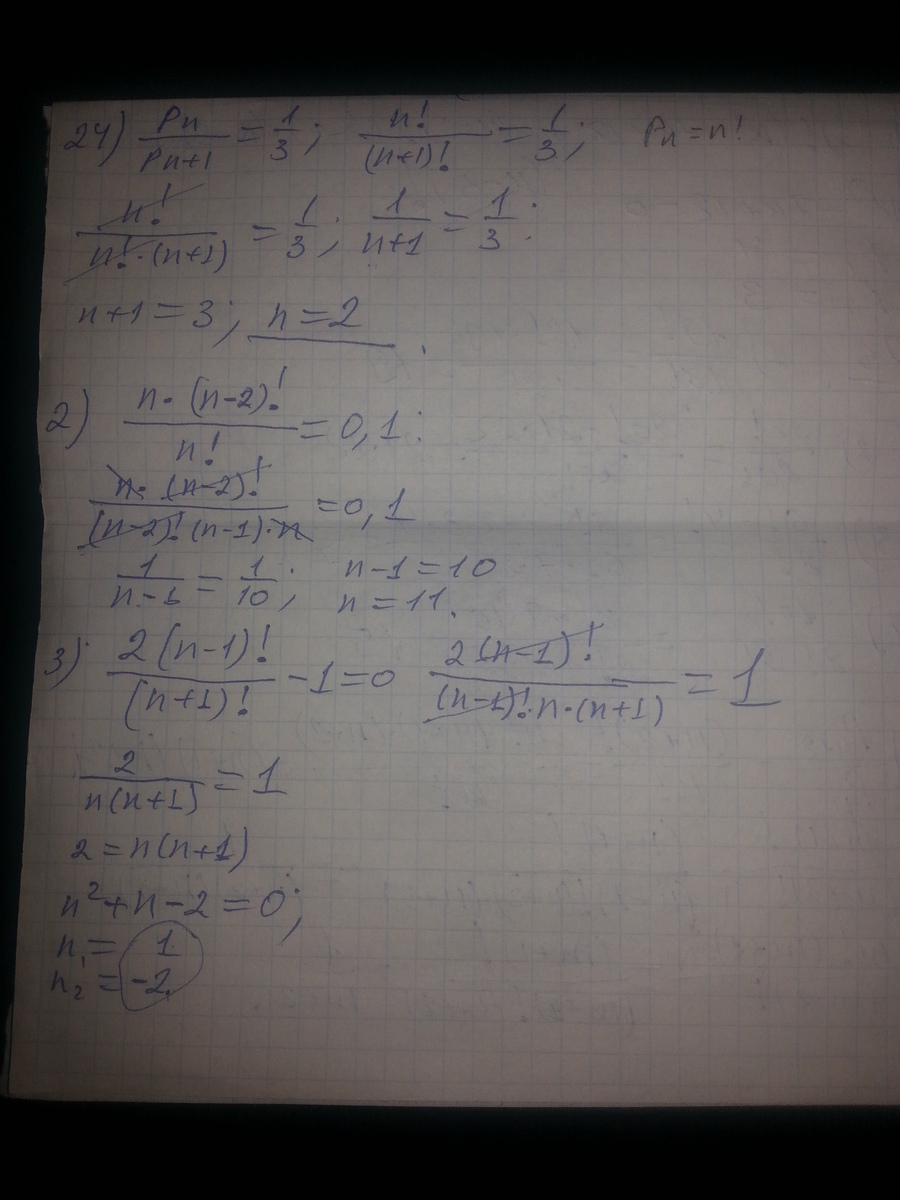 24) Pn/Pn+1 = 1/3; n!/(n+1)! = 1/3; Pn = n!
n!/(n!·(n+1)) = 1/3; 1/(n+1) = 1/3;
n+1 = 3; n = 2.
2) n·(n-2)!/n! = 0,1:
n·(n-2)!/((n-2)!(n-1)·n) = 0,1
1/(n-1) = 1/10; n-1 = 10
n = 11.
3) 2(n-1)!/(n+1)! - 1 = 0 2(n-1)!/((n-1)!·n·(n+1)) = 1
2/(n(n+1)) = 1
2 = n(n+1)
n²+n-2 = 0;
n₁ = 1
n₂ = -2.